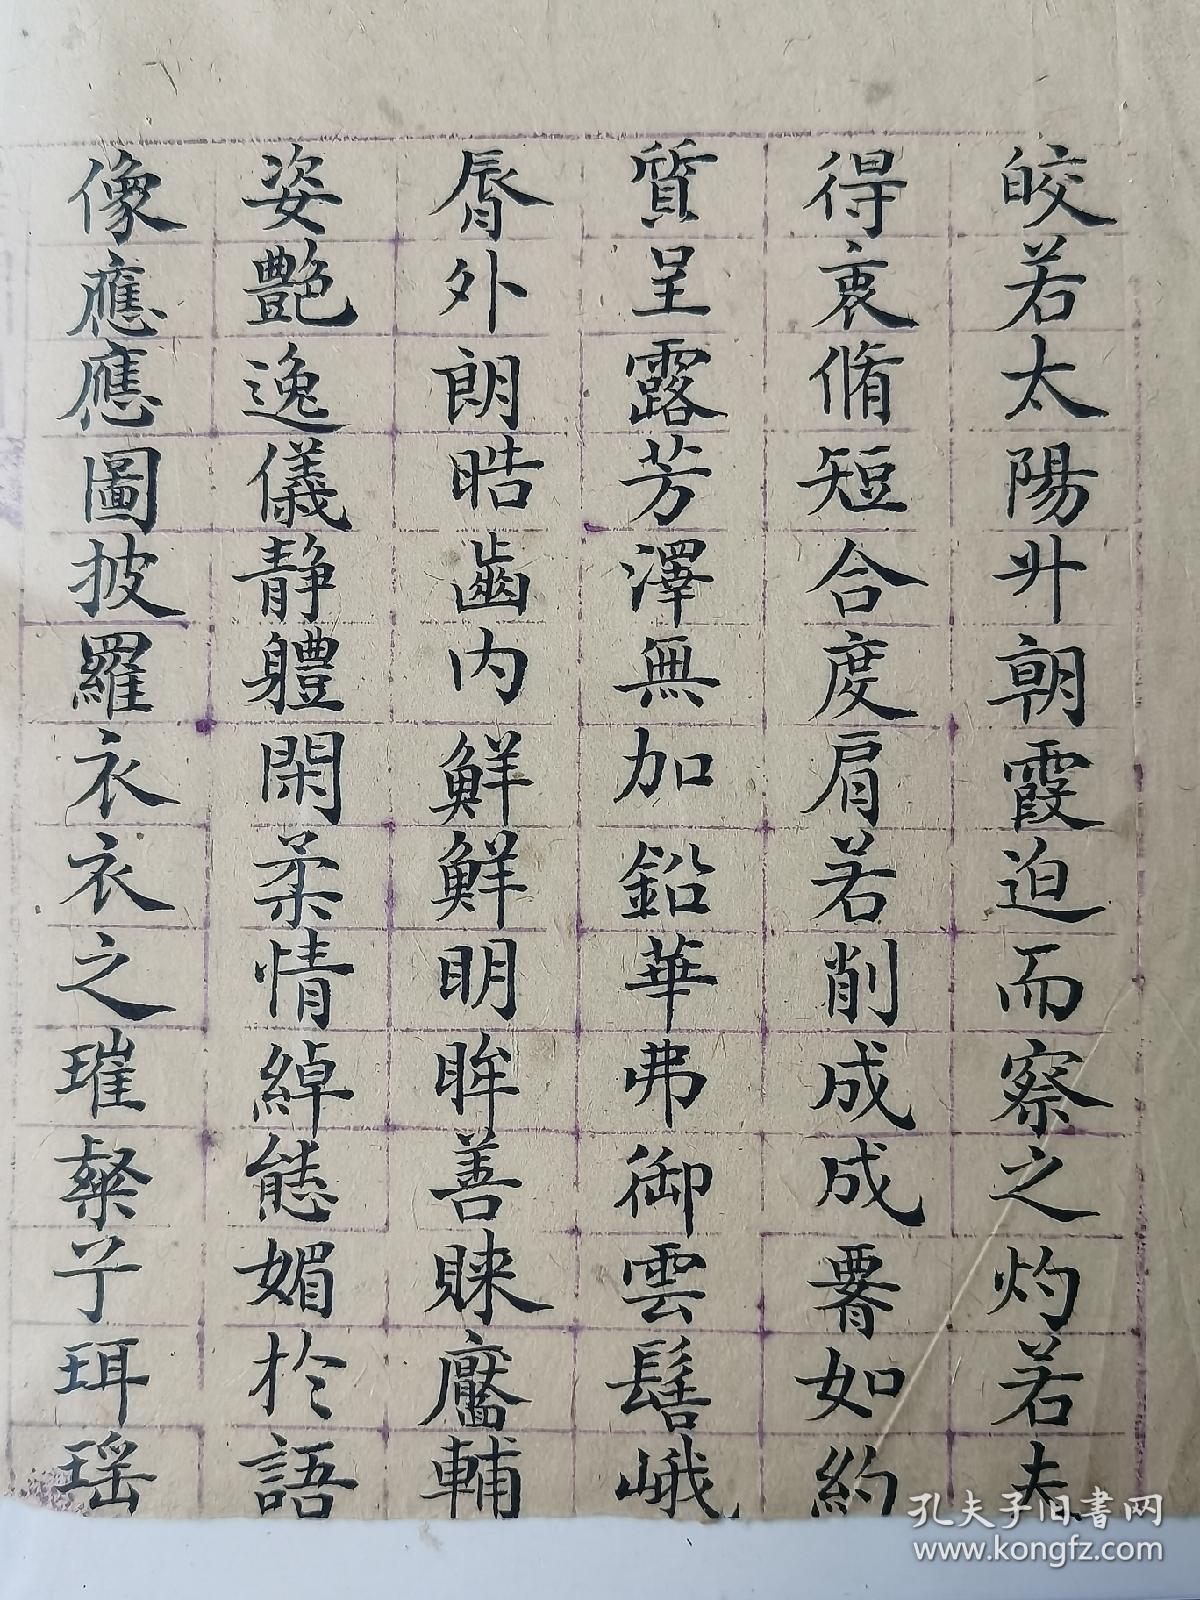 皎若太陽升朝霞迫而察之灼若夫
得衷脩短合度肩若削成成署如約
質呈露芳澤無加鉛華弗御雲髻峨
脣外朗晧齒内鮮鮮明眸善睞靨輔
姿艷逸儀静軆閑柔情綽態媚於語
像應應圖披羅衣衣之璀粲兮珥瑶
孔夫子旧书网
www.kongfz.com